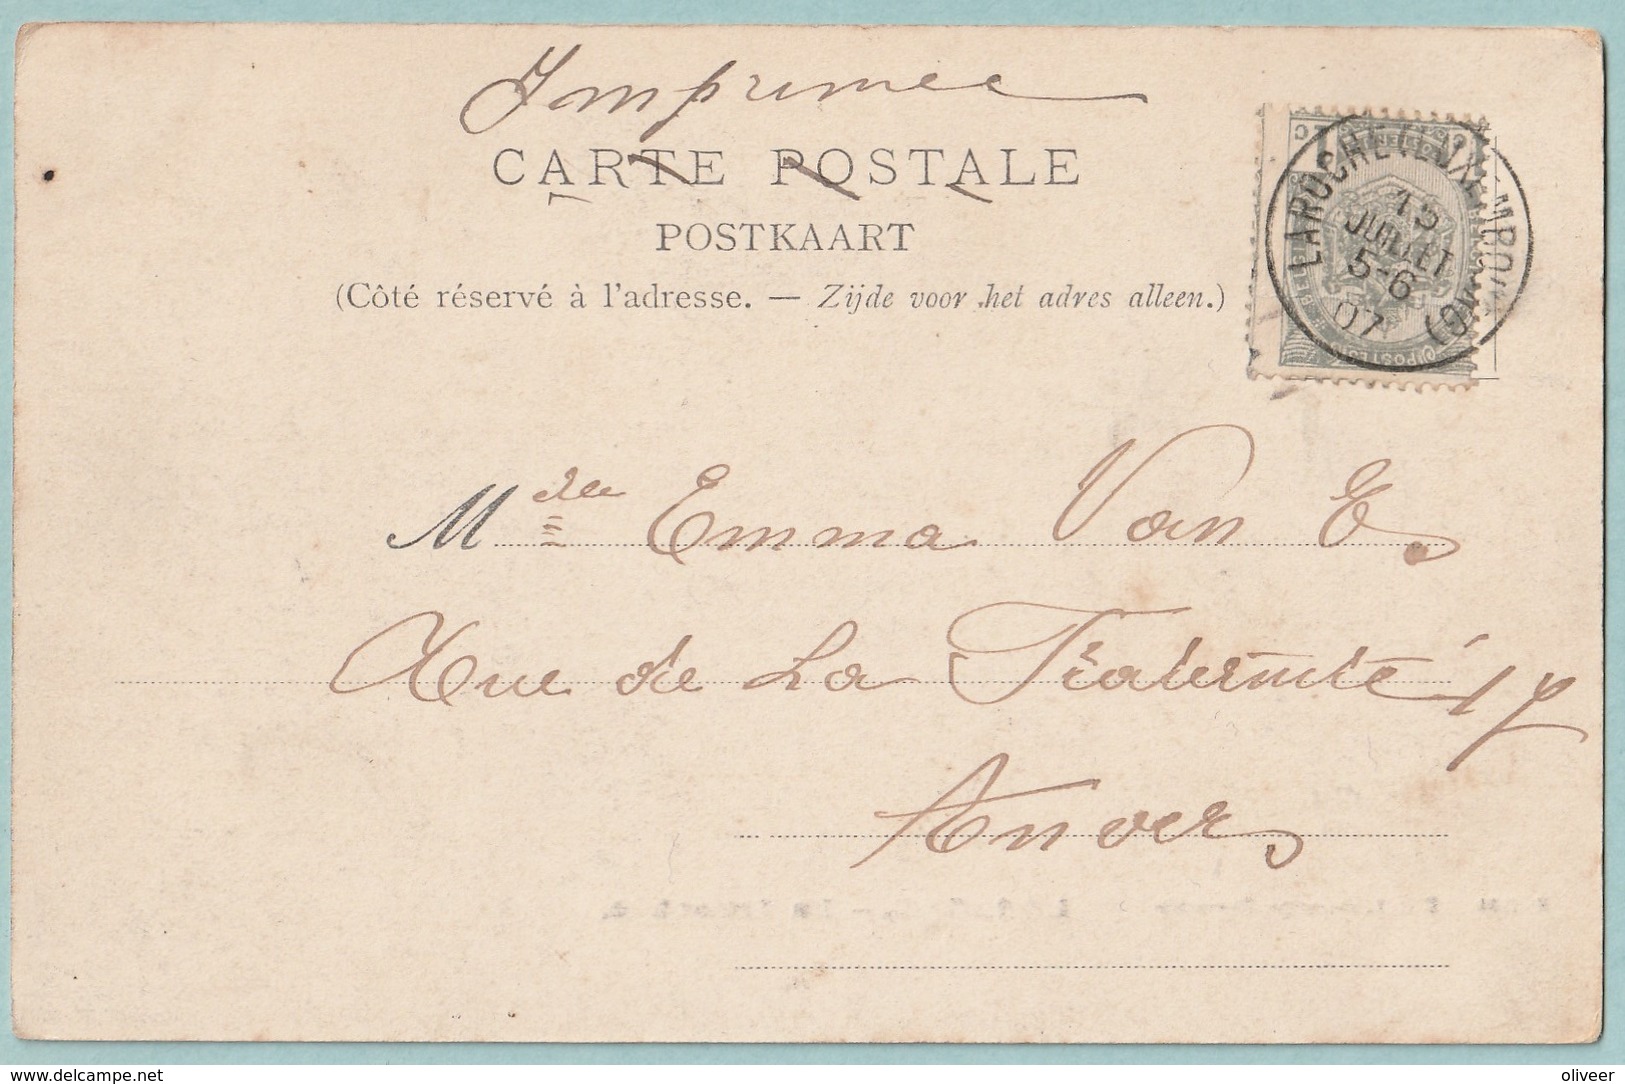 Imprimée
CARTE POSTALE
POSTKAART
(Côté réservé à l'adresse. — Zijde voor het adres alleen.)
LAROCHE (LUXEMBOURG)
JUILLET
5-6
07
POSTES
Mdlle Emma Van E.
Rue de La Fraternité 17
Anvers
www.delcampe.net
oliveer